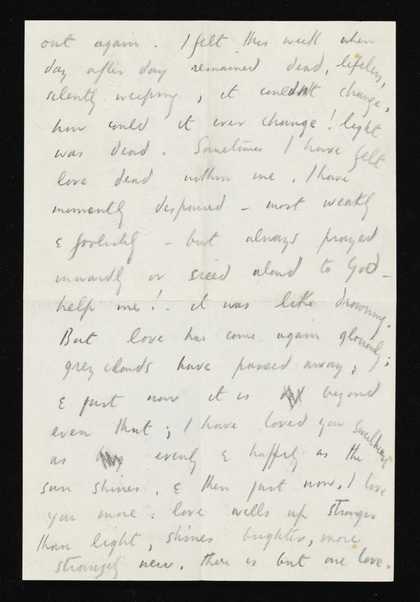 out again. I felt this week when
day after day remained dead, lifeless,
silently weeping, it couldn't change,
how could it ever change! light
was dead. Sometimes I have felt
love dead within me. I have
momently despaired – most weakly
& foolishly – but always prayed
inwardly or cried aloud to God –
help me! – it was like drowning.
But love has come again gloriously;
grey clouds have passed away;
& just now it is beyond
even that; I have loved you
as evenly & happily as the
sun shines. & then just now, I love
you more: love wells up stronger
than light, shines brighter, more
strongly new. there is but one love.